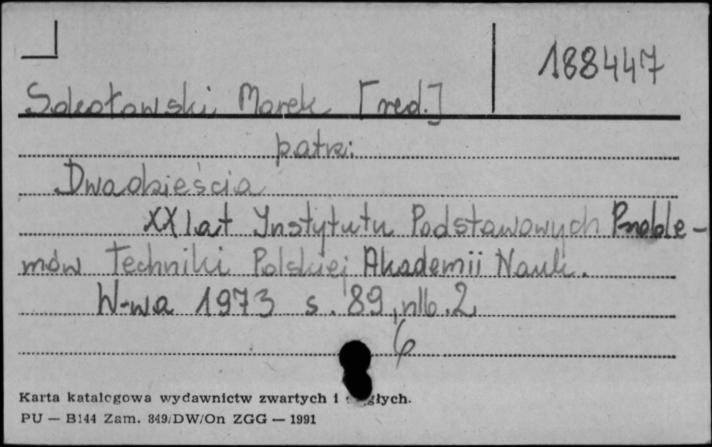 188447
Sokołowski Marek [red.]
patrz:
Dwadzieścia
XX lat Instytutu Podstawowych Proble-
mów Techniki Polskiej Akademii Nauk.
W-wa 1973 s. 89, nlb. 2
6
Karta katalogowa wydawnictw zwartych i
PU — B144 Zam. 849/DW/On ZGG — 1991